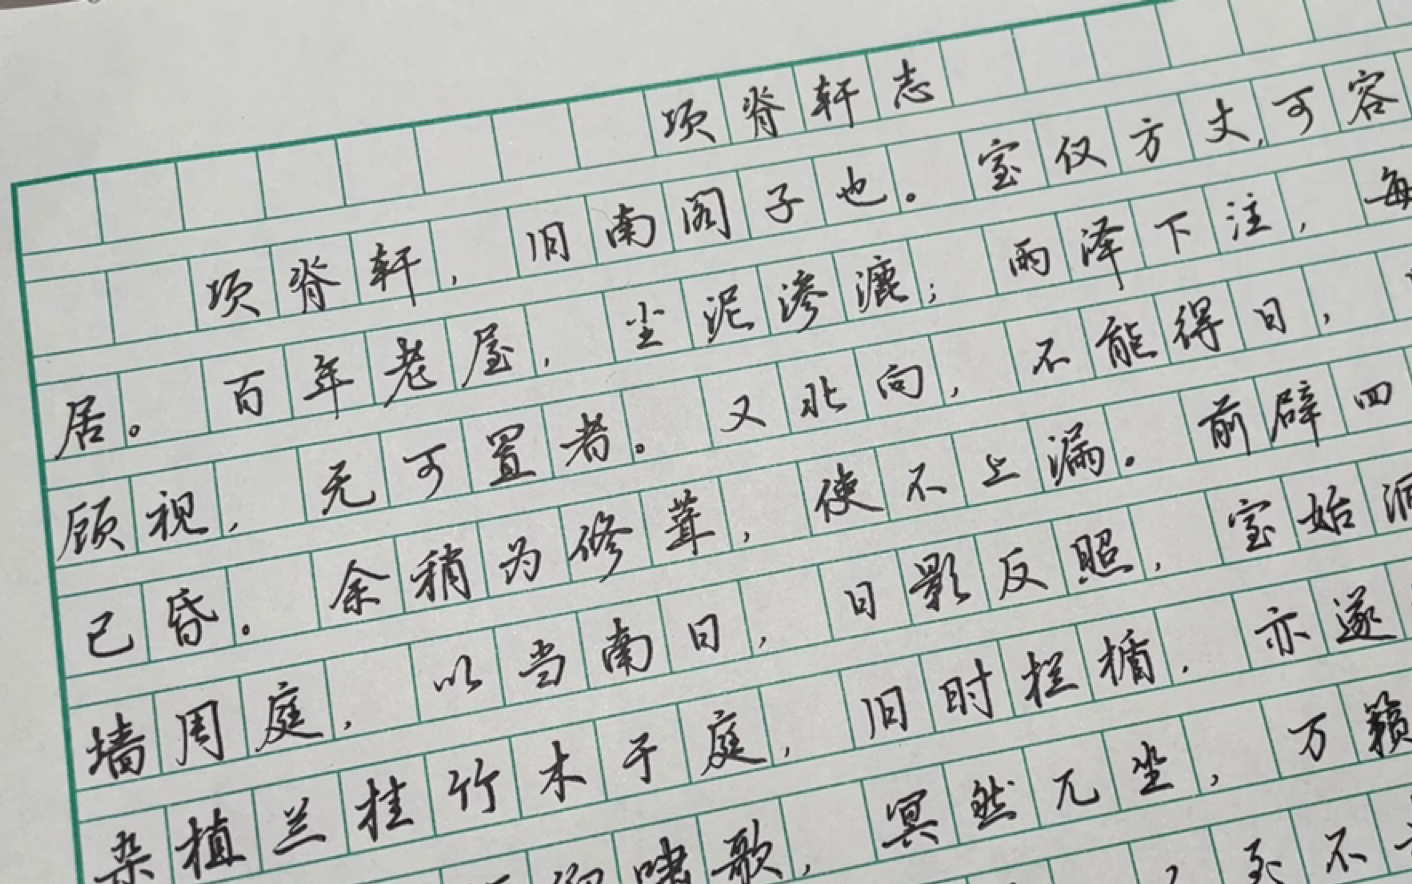 项脊轩志
项脊轩，旧南阁子也。室仅方丈，可容
居。百年老屋，尘泥渗漉；雨泽下注，每
顾视，无可置者。又北向，不能得日，
已昏。余稍为修葺，使不上漏。前辟四
墙周庭，以当南日，日影反照，室始洞
杂植兰桂竹木于庭，旧时栏楯，亦遂
啸歌，冥然兀坐，万籁
至不